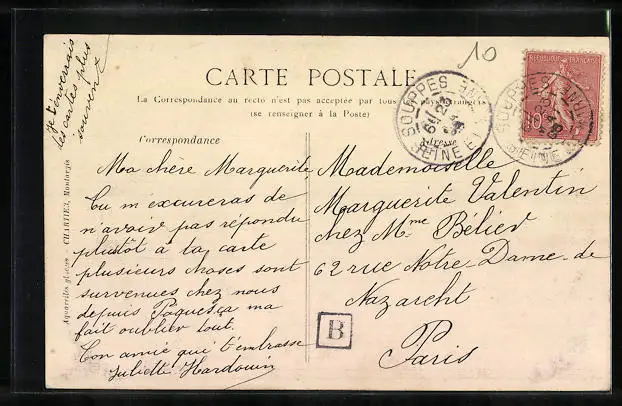 10
CARTE POSTALE
La Correspondance au recto n'est pas acceptée par tous pays étrangers
(se renseigner à la Poste)
Correspondance
Adresse
je t'enverrais
les cartes plus
souvent
Ma chère Marguerite
Tu m'excureras de
n'avoir pas répondu
plustôt à ta carte
plusieurs choses sont
survenues chez nous
depuis Paques, ça ma
fait oublier tout.
Ton amie qui t'embrasse
Juliette Hardouin
Mademoiselle
Marguerite Valentin
chez Mme Bélier
62 rue Notre-Dame-de
Nazareht
Paris
B
SOUPPES
SEINE ET
SOUPPES
REPUBLIQUE FRANÇAISE
10c
CHARTIER, Montargis